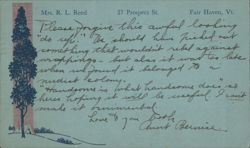 Mrs. R. L. Reed 27 Prospect St. Fair Haven, Vt.
Please forgive this awful looking
do up. We should have picked out
something that wouldn't rebel against
wrappings - but alas it was too late
when we found it belonged to a
nudist colony.
"Handsome is what handsome does" so
here's hoping it will be useful & won't
make it ornimental.
Love to you both
Aunt Bernice